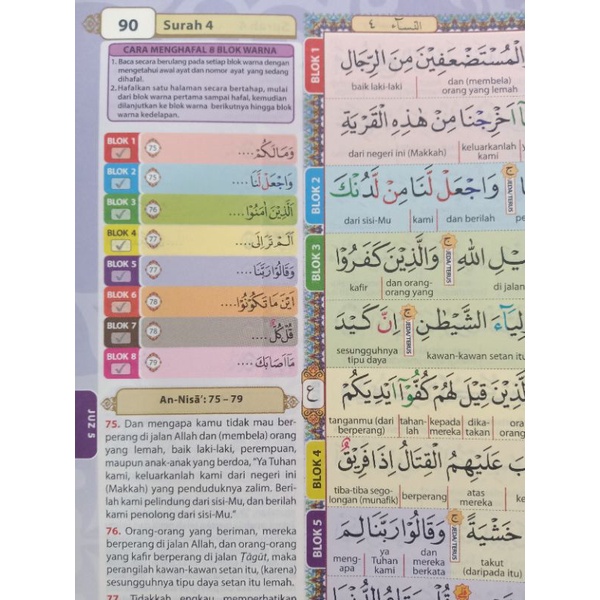 90 Surah 4
CARA MENGHAFAL 8 BLOK WARNA
1. Baca secara berulang pada setiap blok warna dengan
mengetahui awal ayat dan nomor ayat yang sedang
dihafal.
2. Hafalkan satu halaman secara bertahap, mulai
dari blok warna pertama sampai hafal, kemudian
dilanjutkan ke blok warna berikutnya hingga blok
warna kedelapan.
BLOK 1 75 وَمَالَكُمْ....
BLOK 2 75 وَاجْعَلْ لَنَا....
BLOK 3 76 اَلَّذِيْنَ اٰمَنُوْا....
BLOK 4 77 اَلَمْ تَرَ اِلَى....
BLOK 5 77 وَقَالُوْا رَبَّنَا....
BLOK 6 78 اَيْنَ مَا تَكُوْنُوْا....
BLOK 7 78 قُلْ كُلٌّ....
BLOK 8 79 مَآ اَصَابَكَ....
An-Nisā': 75 – 79
75. Dan mengapa kamu tidak mau ber-
perang di jalan Allah dan (membela) orang
yang lemah, baik laki-laki, perempuan,
maupun anak-anak yang berdoa, “Ya Tuhan
kami, keluarkanlah kami dari negeri ini
(Makkah) yang penduduknya zalim. Beri-
lah kami pelindung dari sisi-Mu, dan berilah
kami penolong dari sisi-Mu.”
76. Orang-orang yang beriman, mereka
berperang di jalan Allah, dan orang-orang
yang kafir berperang di jalan Ṭāgūt, maka
perangilah kawan-kawan setan itu, (karena)
sesungguhnya tipu daya setan itu lemah.
77. Tidakkah engkau memperhatikan
JUZ 5
النساء ٤
BLOK 1
الْمُسْتَضْعَفِيْنَ مِنَ الرِّجَالِ
baik laki-laki dan (membela) orang yang lemah
اَخْرِجْنَا مِنْ هٰذِهِ الْقَرْيَةِ
dari negeri ini (Makkah) keluarkanlah kami
BLOK 2
وَاجْعَلْ لَّنَا مِنْ لَّدُنْكَ
JEDA/TERUS
dari sisi-Mu kami dan berilah
BLOK 3
اللّٰهِ ۚ وَالَّذِيْنَ كَفَرُوْا
JEDA/TERUS
kafir dan orang-orang yang di jalan
الشَّيْطٰنِ ۚ اِنَّ كَيْدَ
JEDA/TERUS
sesungguhnya tipu daya kawan-kawan setan itu
ع
قِيْلَ لَهُمْ كُفُّوْٓا اَيْدِيَكُمْ
tanganmu (dari berperang) tahan-lah kepada mereka dika-takan
BLOK 4
عَلَيْهِمُ الْقِتَالُ اِذَا فَرِيْقٌ
tiba-tiba sego-longan (munafik) berperang atas mereka
BLOK 5
خَشْيَةً ۚ وَقَالُوْا رَبَّنَا لِمَ
JEDA/TERUS
meng-apa ya Tuhan kami dan mereka berkata takut (daripada itu)